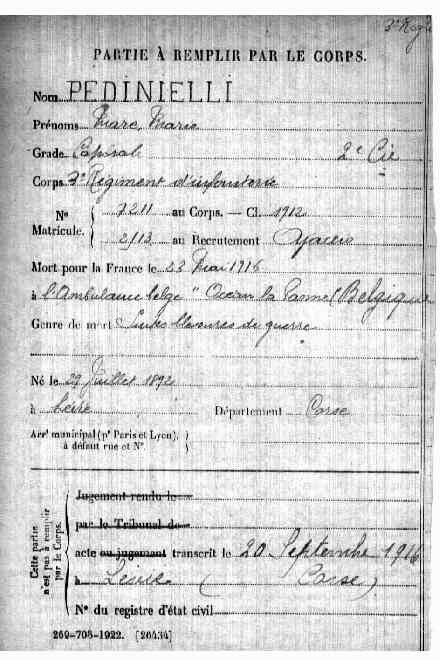 3e Reg
PARTIE À REMPLIR PAR LE CORPS.
Nom PEDINIELLI
Prénoms Marc, Marie
Grade Caporal 2e Cie
Corps 3e Régiment d'infanterie
No Matricule. 7211 au Corps. — Cl. 1912
2113 au Recrutement Ajaccio
Mort pour la France le 23 Mai 1916
à l'Ambulance belge "Océan la Panne (Belgique
Genre de mort Suites blessures de guerre
Né le 29 Juillet 1892
à Département Corse
Arrt municipal (pr Paris et Lyon),
à défaut rue et No.
Cette partie n'est pas à remplir par le Corps.
Jugement rendu le
par le Tribunal de
acte ou jugement transcrit le 20 Septembre 1916
à (Corse)
No du registre d'état civil
260-708-1922. [26434]